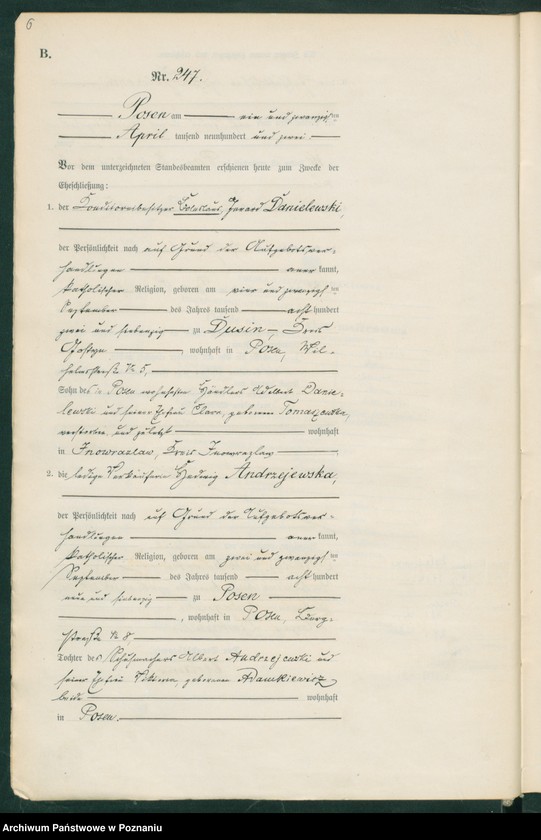 6
B.
Nr. 247.
Posen am ein und zwanzigsten
April tausend neunhundert und zwei
Vor dem unterzeichneten Standesbeamten erschienen heute zum Zwecke der
Eheschließung:
1. der Konditoreibesitzer Boleslaus Danielewski,
der Persönlichkeit nach auf Grund der Aufgebotsver-
handlungen anerkannt,
katholischer Religion, geboren am vier und zwanzigsten
September des Jahres tausend acht hundert
zwei und siebenzig zu Dusin, Kreis
Gostyn, wohnhaft in Posen, Wil-
helmstraße N 5,
Sohn des in Posen wohnhaften Händlers Adalbert Danie-
lewski und seiner Ehefrau Clara, geborenen
verstorben, und zuletzt wohnhaft
in Inowrazlaw, Kreis Inowrazlaw
2. die ledige Verkäuferin Hedwig Andrzejewska,
der Persönlichkeit nach auf Grund der Aufgebotsver-
handlungen anerkannt,
katholischer Religion, geboren am zwei und zwanzigsten
September des Jahres tausend acht hundert
neun und siebenzig zu Posen
, wohnhaft in Posen, Berg-
straße N 8
Tochter des Schuhmachers Albert Andrzejewski und
seiner Ehefrau geborenen Adamkiewicz
beide wohnhaft
in Posen.
Archiwum Państwowe w Poznaniu